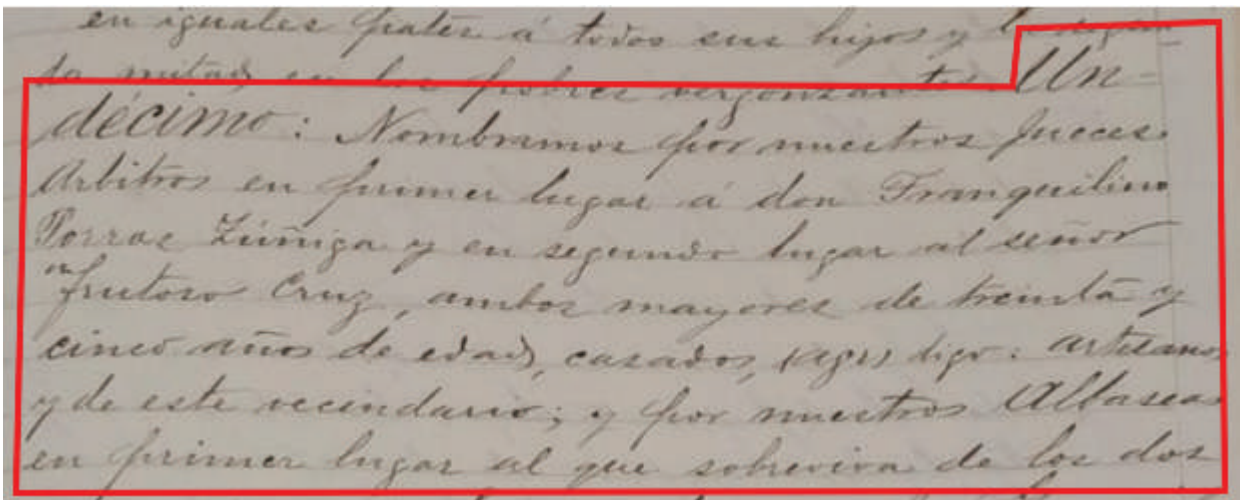 en iguales partes á todos sus hijos y la segun-
da mitad en los pobres vergonzantes. Un-
décimo: Nombramos por nuestros Jueces
Arbitros en primer lugar á don Tranquilino
Porras Zúñiga y en segundo lugar al señor
frutoso Cruz, ambos mayores de treinta y
cinco años de edad, casados, (agr) digo: artesanos
y de este vecindario; y por nuestros Albaseas
en primer lugar al que sobreviva de los dos